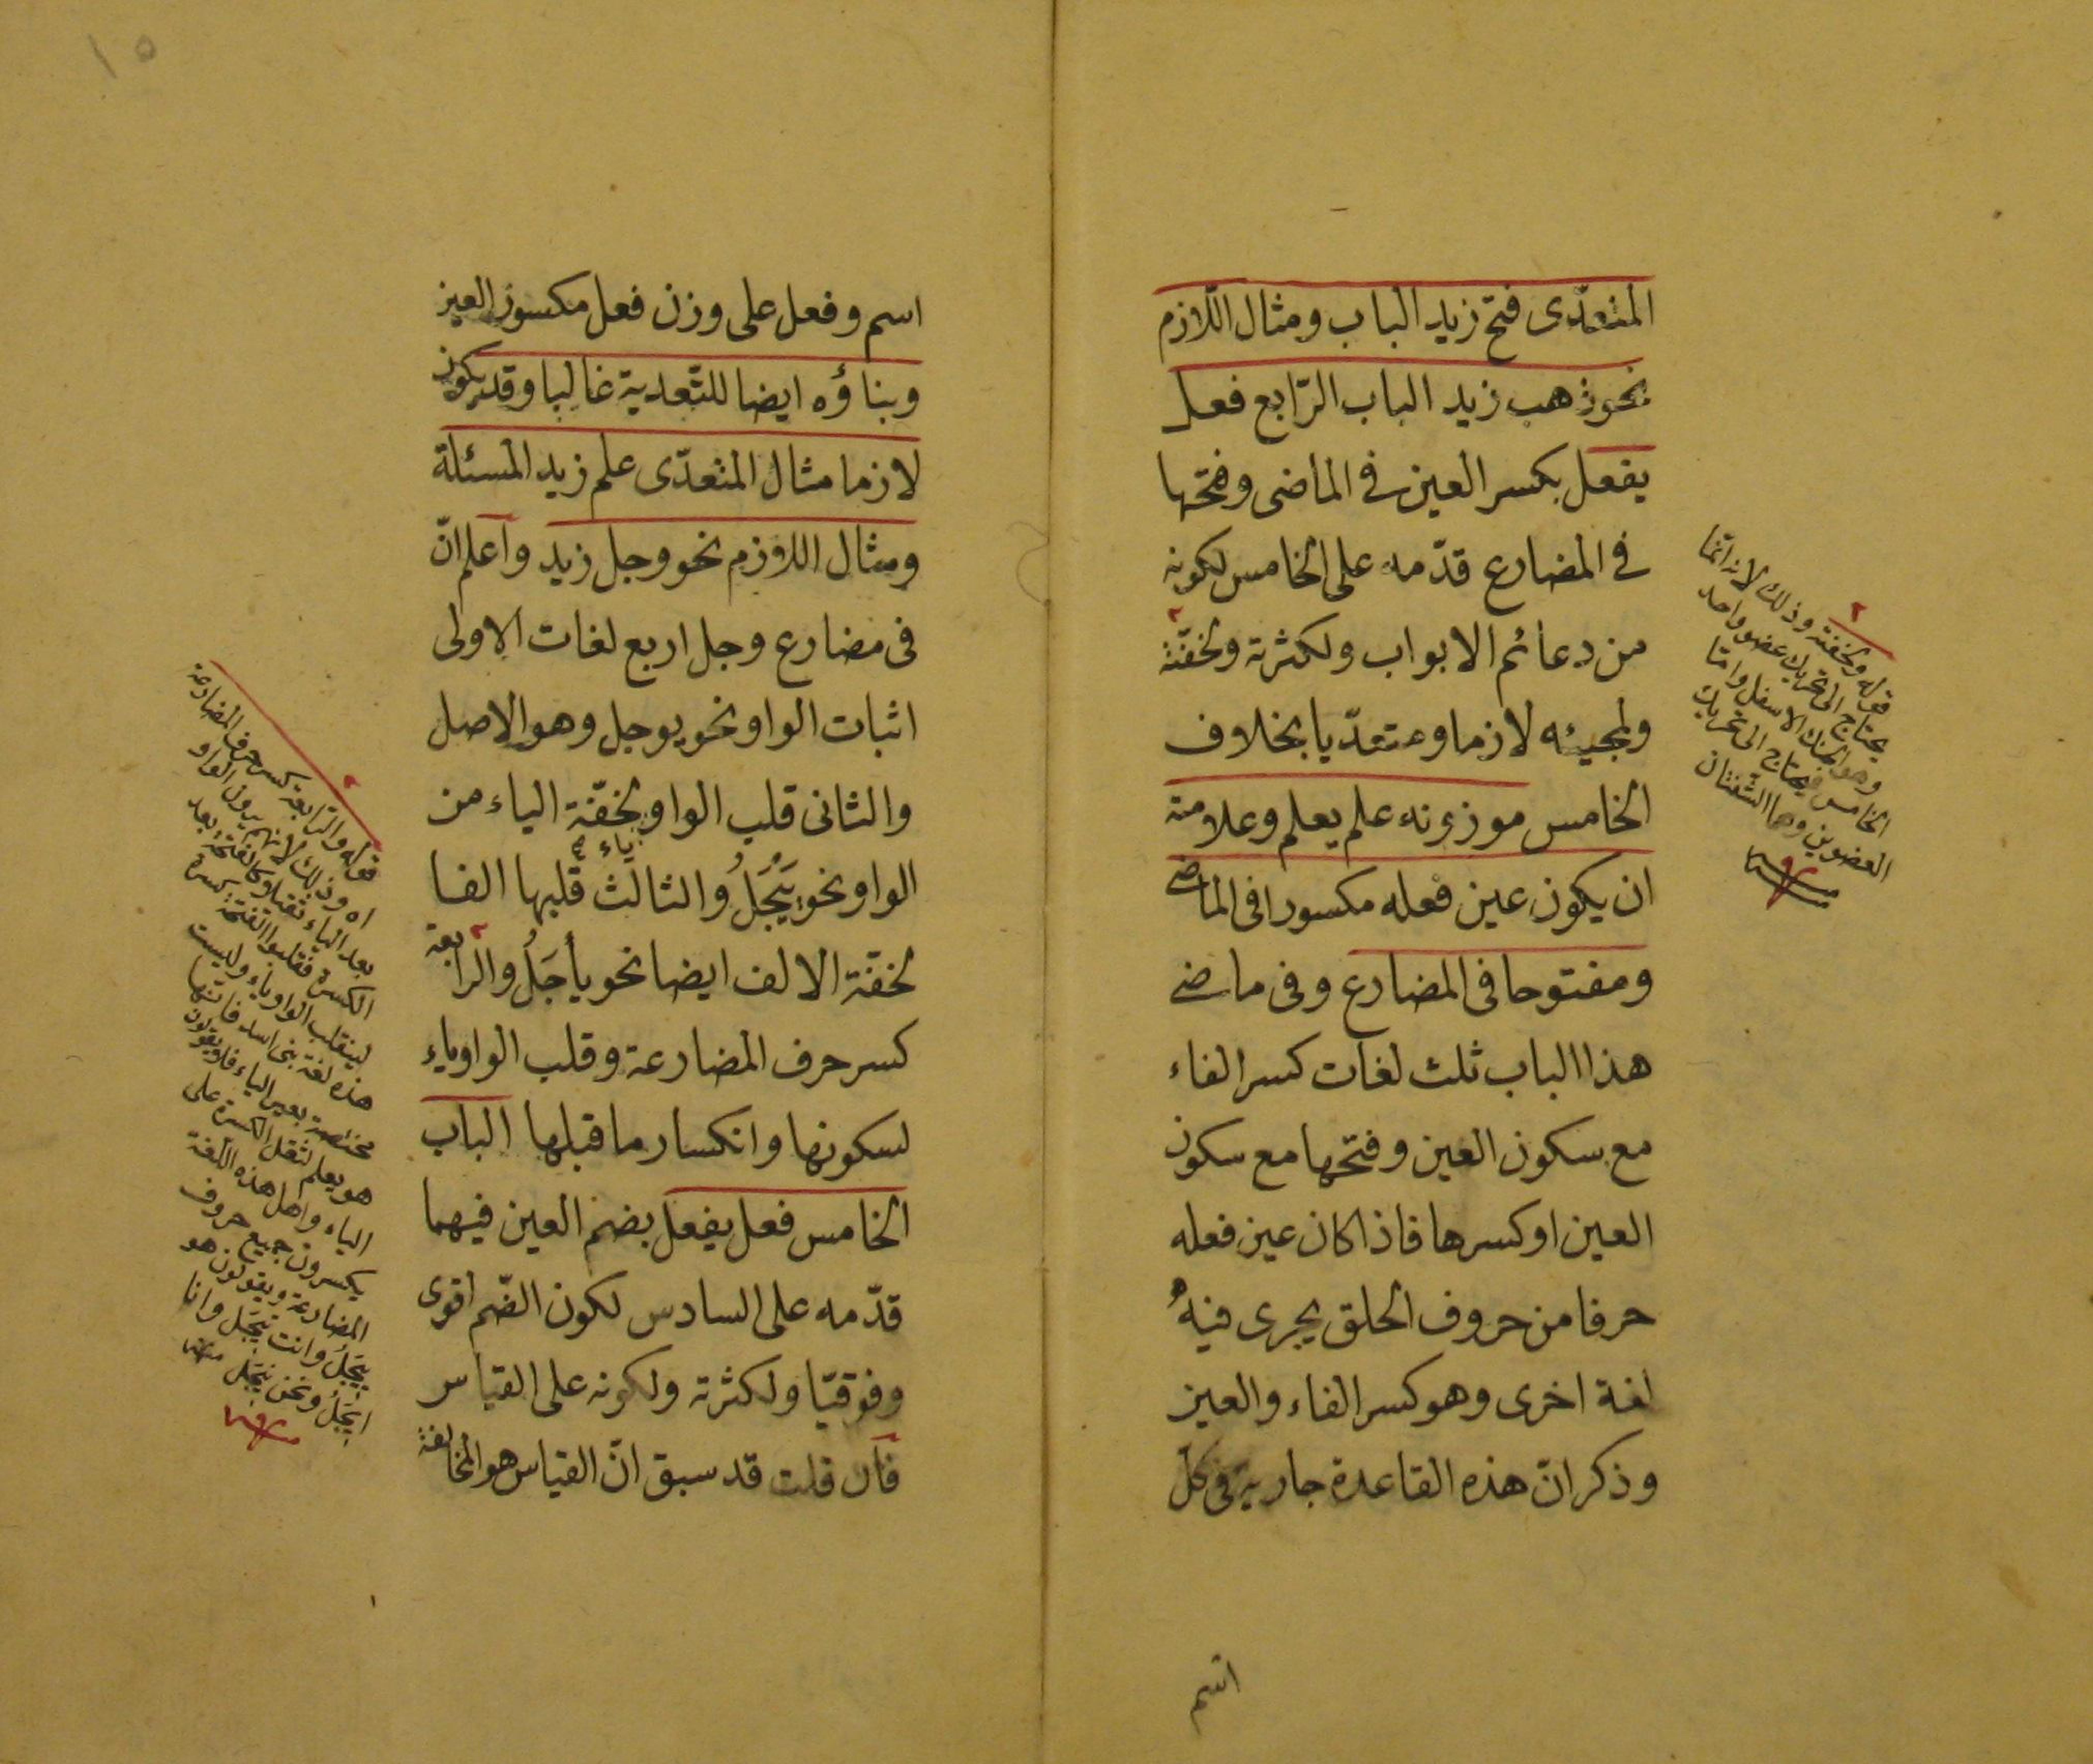 المتعدّى فتح زيد الباب ومثال اللّازم
نحو ذهب زيد الباب الرّابع فعل
يفعل بكسر العين فى الماضى وفتحها
فى المضارع قدّمه على الخامس لكونه
من دعائم الابواب ولكثرته ولخفّته
ولمجيئه لازما ومتعدّيا بخلاف
الخامس موزونه علم يعلم وعلامته
ان يكون عين فعله مكسورا فى الماضى
ومفتوحا فى المضارع وفى ماضى
هذا الباب ثلث لغات كسر الفاء
مع سكون العين وفتحها مع سكون
العين او كسرها فاذا كان عين فعله
حرفا من حروف الحلق يجرى فيه
لغة اخرى وهو كسر الفاء والعين
وذكر انّ هذه القاعدة جارية فى كلّ
قوله ولخفته وذلك لانه انّما
يحتاج الى تحريك عضو واحد
وهو الحنك الاسفل وامّا
الخامس فيحتاج الى تحريك
العضوين وهما الشّفتان
اسم
١٥
اسم وفعل على وزن فعل مكسور العين
وبناؤه ايضا للتّعدية غالبا وقد يكون
لازما مثال المتعدّى علم زيد المسئلة
ومثال اللازم نحو وجل زيد واعلم انّ
فى مضارع وجل اربع لغات الاولى
اثبات الواو نحو يوجل وهو الاصل
والثانى قلب الواو ياء لخفّة الياء من
الواو نحو يَيْجَلُ والثالث قلبها الفا
لخفّة الالف ايضا نحو يأجَلُ والرابعة
كسر حرف المضارعة وقلب الواو ياء
لسكونها وانكسار ما قبلها الباب
الخامس فعل يفعل بضم العين فيهما
قدّمه على السادس لكون الضّم اقوى
وفوقيّا ولكثرته ولكونه على القياس
فان قلت قد سبق انّ القياس هو المخالفة
قوله والرّابعة كسر حرف المضارعة
اه وذلك لانهم يرون الواو
بعد الياء ثقيلا وكالفتحة بعد
الكسرة فقلبوا الفتحة كسرة
لينقلب الواو ياء وليست
هذه لغة بنى اسد فانّها
مختصة بغير الياء فلا يقولون
هو يعلم لثقل الكسرة على
الياء واهل هذه اللّغة
يكسرون جميع حروف
المضارعة ويقولون هو
يِيجَلُ وانت تِيجَل وانا
اِيجَلُ ونحن نِيجَل